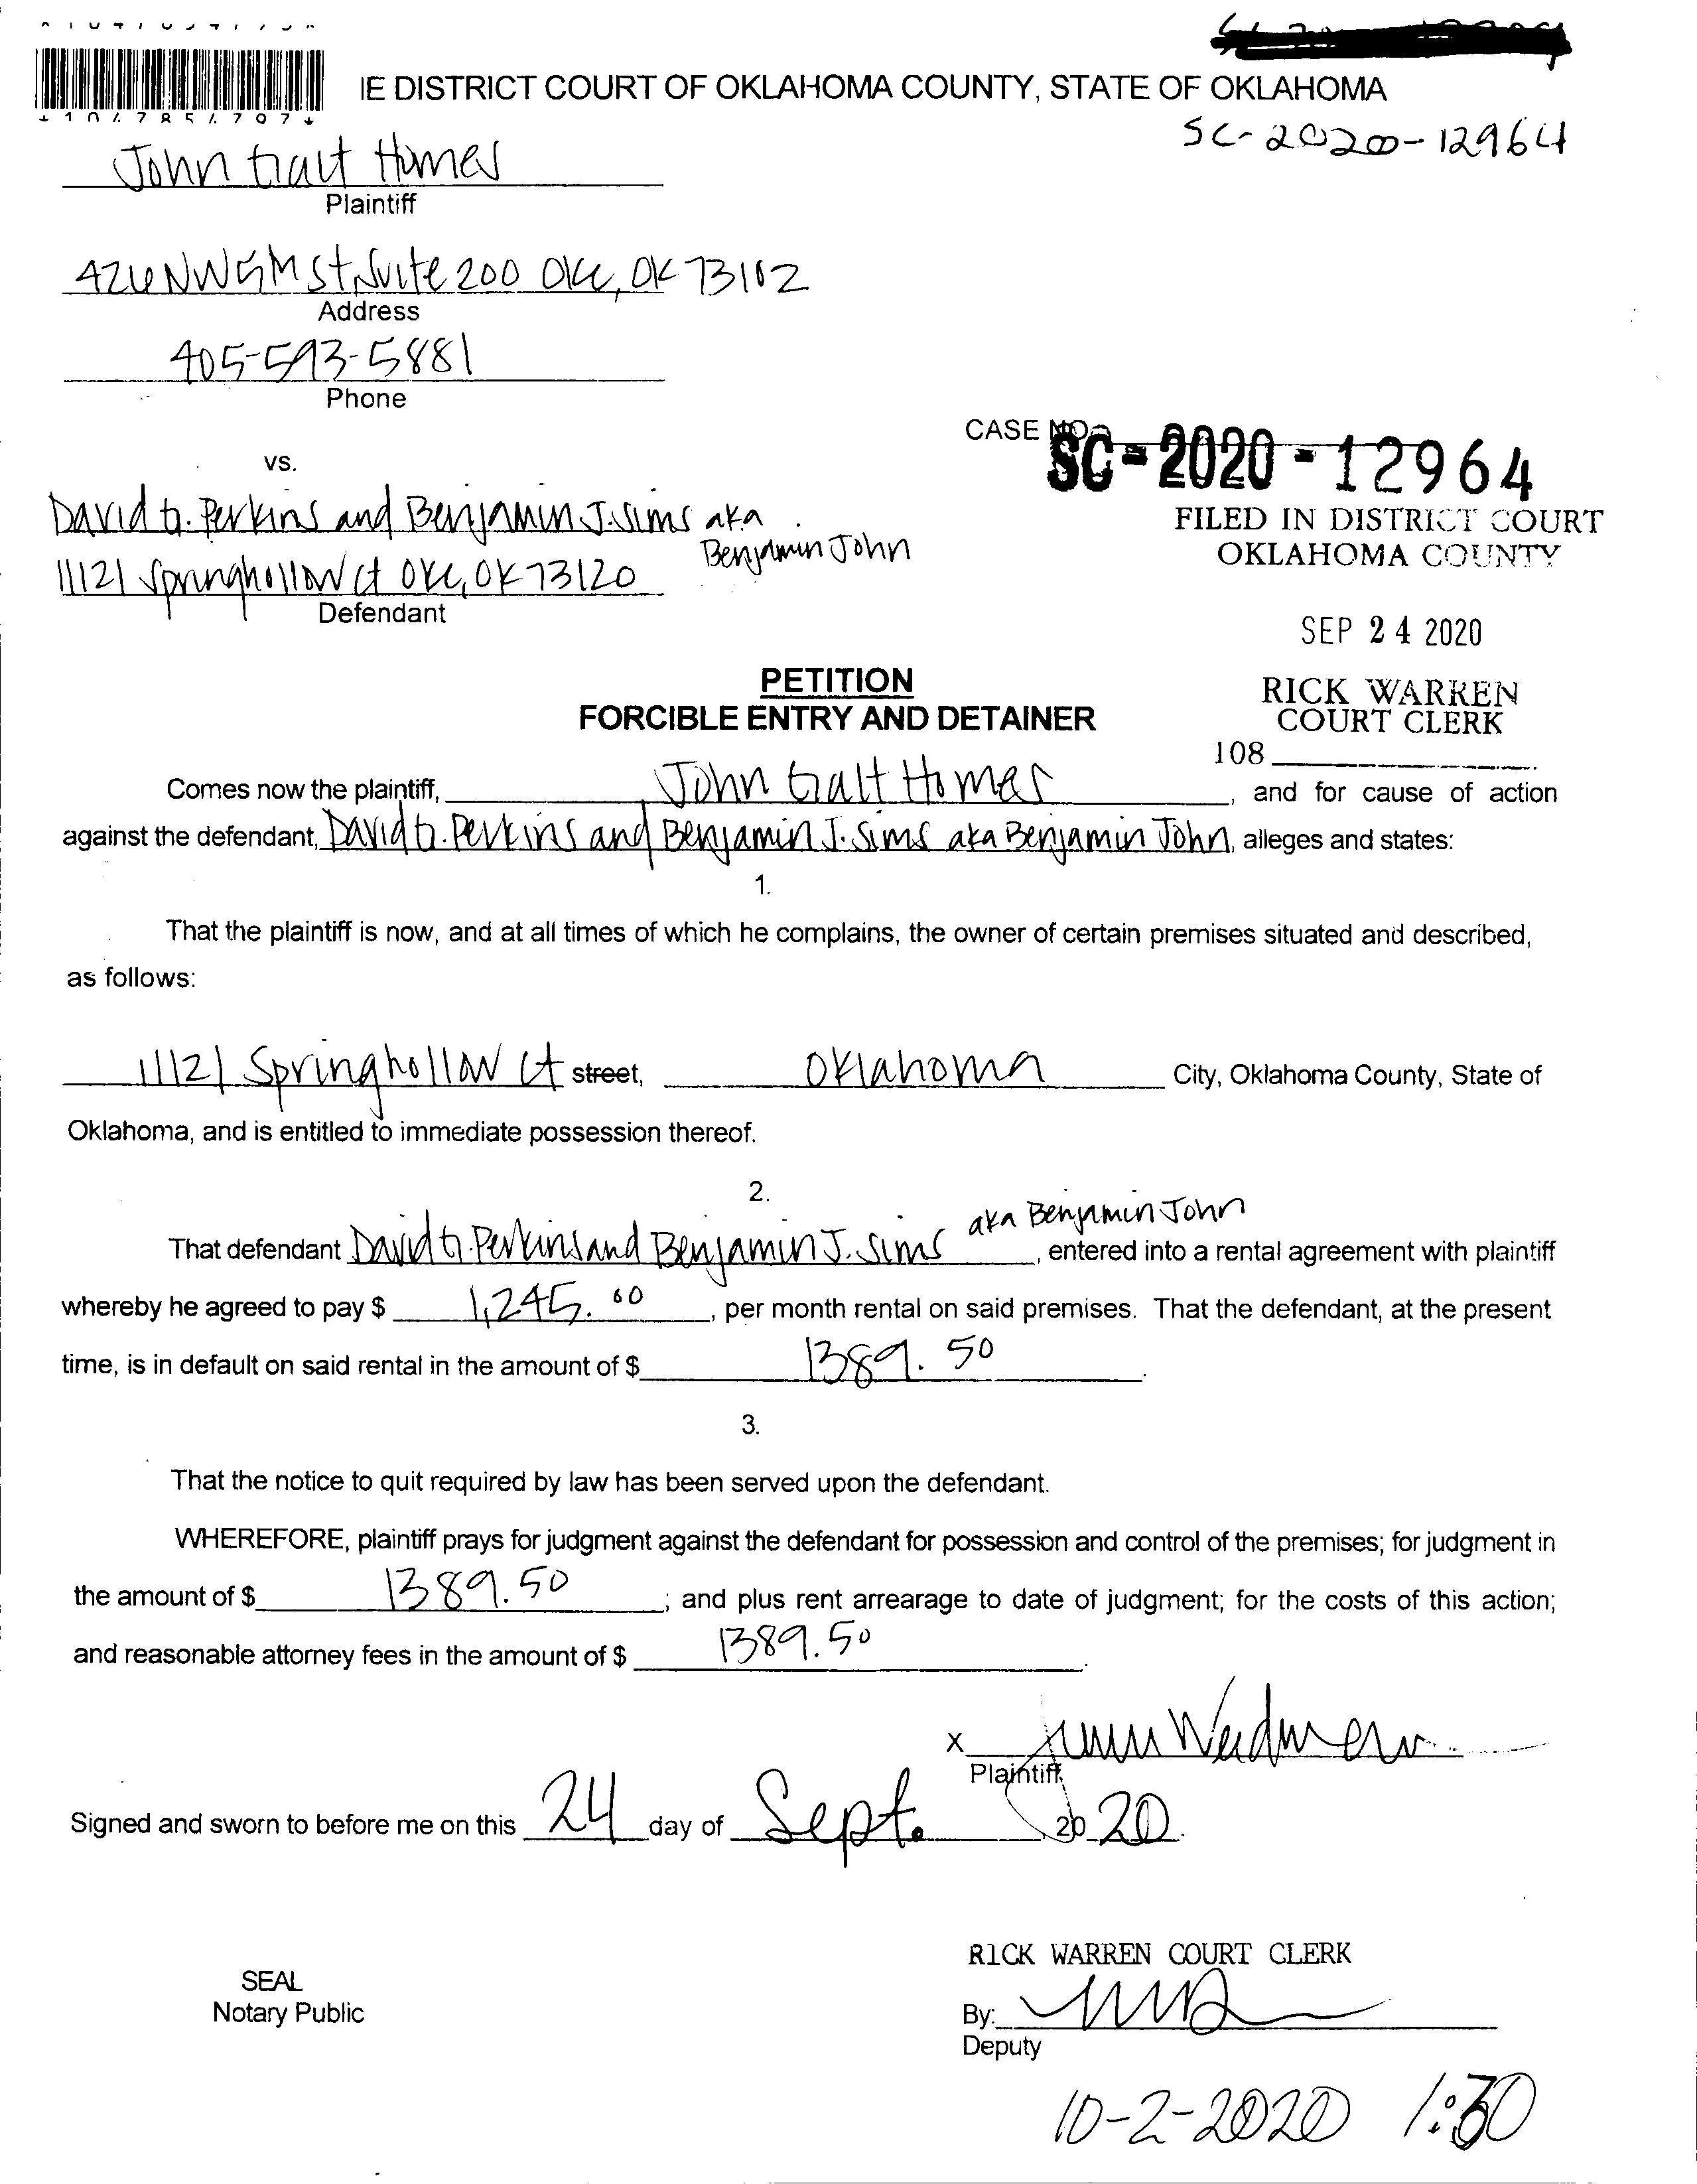 IE DISTRICT COURT OF OKLAHOMA COUNTY, STATE OF OKLAHOMA
SC-2020-12964
John Galt Homes
Plaintiff
426 NW 5th St Suite 200 OKC, OK 73102
Address
405-593-5881
Phone
CASE NO.
SC-2020-12964
vs.
David G. Perkins and Benjamin J. Sims aka
Benjamin John
FILED IN DISTRICT COURT
OKLAHOMA COUNTY
11121 Springhollow Ct OKC, OK 73120
Defendant
SEP 24 2020
PETITION
FORCIBLE ENTRY AND DETAINER
RICK WARREN
COURT CLERK
108
Comes now the plaintiff, John Galt Homes, and for cause of action
against the defendant, David G. Perkins and Benjamin J. Sims aka Benjamin John, alleges and states:
1.
That the plaintiff is now, and at all times of which he complains, the owner of certain premises situated and described,
as follows:
11121 Springhollow Ct street, Oklahoma City, Oklahoma County, State of
Oklahoma, and is entitled to immediate possession thereof.
2.
aka Benjamin John
That defendant David G. Perkins and Benjamin J. Sims, entered into a rental agreement with plaintiff
whereby he agreed to pay $ 1,245.00, per month rental on said premises. That the defendant, at the present
time, is in default on said rental in the amount of $ 1389.50.
3.
That the notice to quit required by law has been served upon the defendant.
WHEREFORE, plaintiff prays for judgment against the defendant for possession and control of the premises; for judgment in
the amount of $ 1389.50; and plus rent arrearage to date of judgment; for the costs of this action;
and reasonable attorney fees in the amount of $ 1389.50.
X
Plaintiff
Signed and sworn to before me on this 24 day of Sept., 20 20.
RICK WARREN COURT CLERK
SEAL
Notary Public
By:
Deputy
10-2-2020 1:30